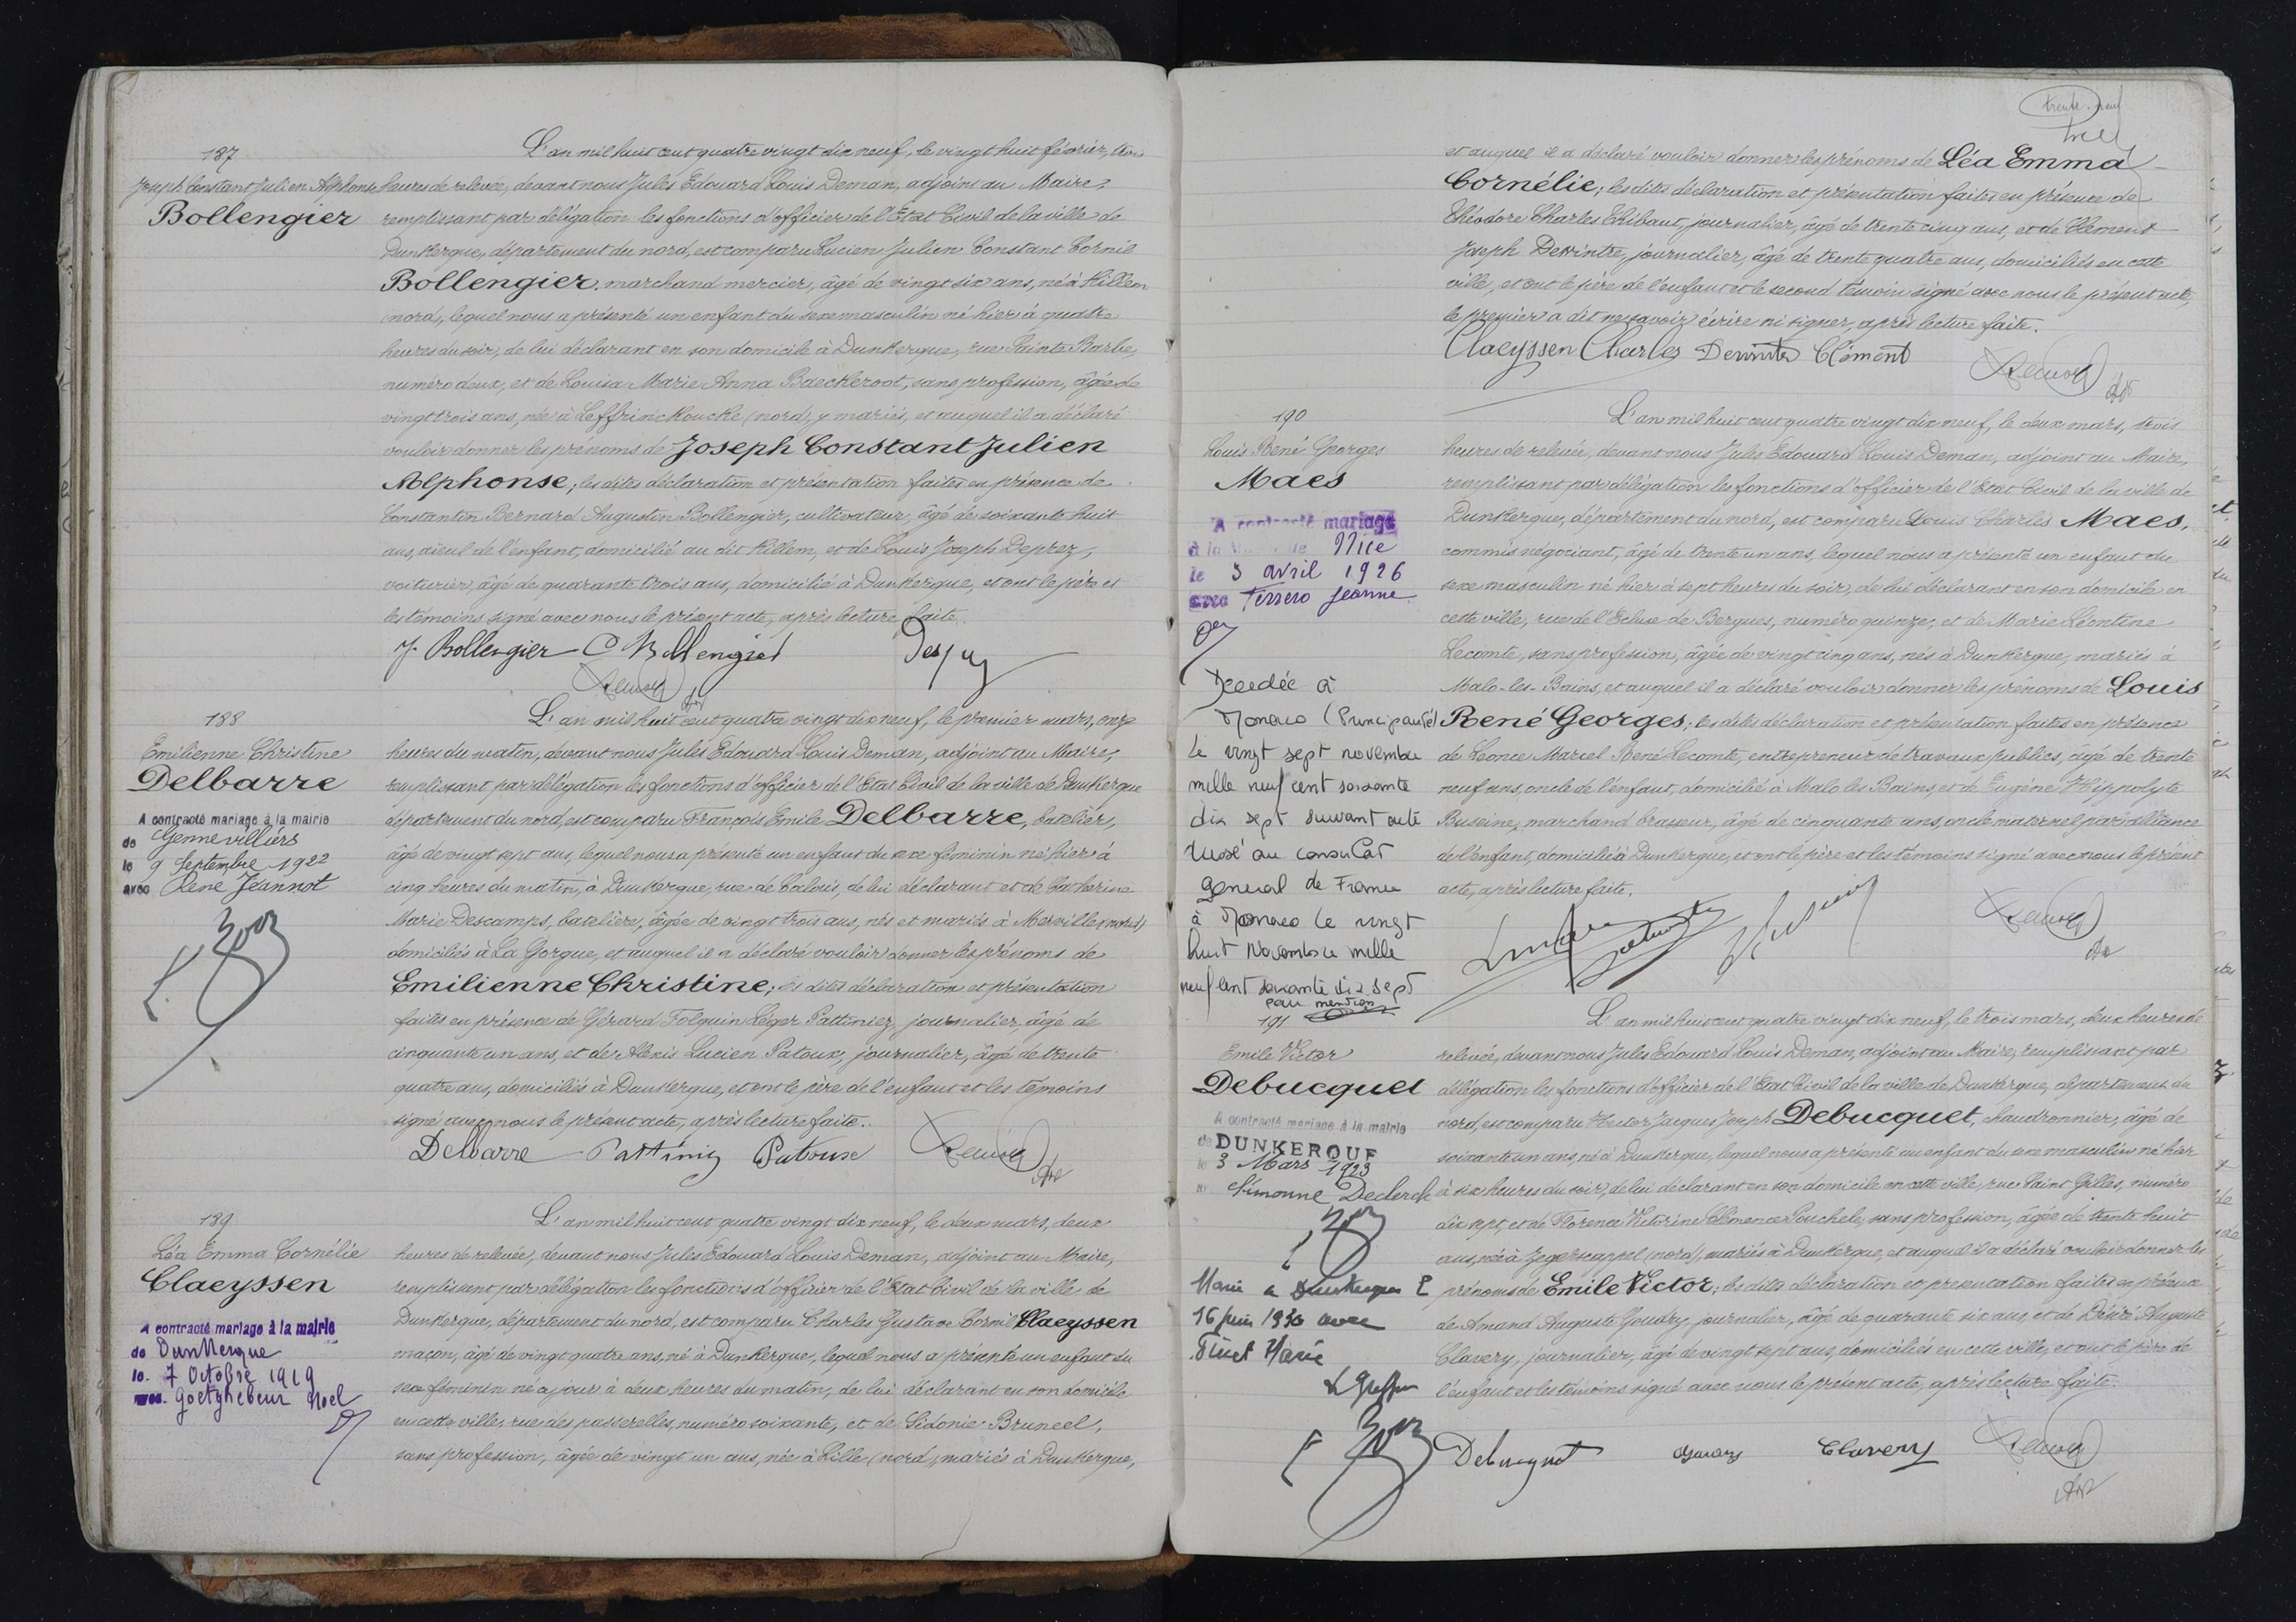 187
Joseph Constant Julien Alphonse
Bollengier
L'an mil huit cent quatre vingt dix neuf, le vingt huit février, trois
heures de relevée, devant nous Jules Edouard Louis Deman, adjoint au Maire,
remplissant par délégation les fonctions d'officier de l'Etat Civil de la ville de
Dunkerque, département du nord, est comparu Lucien Julien Constant Cornil
Bollengier, marchand mercier, âgé de vingt six ans, né à Killem
(nord), lequel nous a présenté un enfant du sexe masculin né hier à quatre
heures du soir, de lui déclarant en son domicile à Dunkerque, rue Sainte Barbe,
numéro deux, et de Louisa Marie Anna Baeckeroot, sans profession, âgée de
vingt trois ans, née à Leffrinckoucke (nord), y mariés, et auquel il a déclaré
vouloir donner les prénoms de Joseph Constant Julien
Alphonse; les dites déclaration et présentation faites en présence de
Constantin Bernard Augustin Bollengier, cultivateur, âgé de soixante huit
ans, aïeul de l'enfant, domicilié au dit Killem, et de Louis Joseph Deprez,
voiturier, âgé de quarante trois ans, domicilié à Dunkerque, et ont le père et
les témoins signé avec nous le présent acte, après lecture faite.
J. Bollengier C Bollengier
188
Emilienne Christine
Delbarre
A contracté mariage à la mairie
de Gennevilliers
le 9 Septembre 1922
avec René Jeannot
L'an mil huit cent quatre vingt dix neuf, le premier mars, onze
heures du matin, devant nous Jules Edouard Louis Deman, adjoint au Maire,
remplissant par délégation les fonctions d'officier de l'Etat Civil de la ville de Dunkerque
département du nord, est comparu François Emile Delbarre, batelier,
âgé de vingt sept ans, lequel nous a présenté un enfant du sexe féminin né hier à
cinq heures du matin, à Dunkerque, rue de Calais, de lui déclarant et de Catherine
Marie Descamps, batelière, âgée de vingt trois ans, nés et mariés à Merville (nord)
domiciliés à La Gorgue, et auquel il a déclaré vouloir donner les prénoms de
Emilienne Christine; les dites déclaration et présentation
faites en présence de Gérard Folquin Léger Pattiniez, journalier, âgé de
cinquante un ans, et de Alexis Lucien Patoux, journalier, âgé de trente
quatre ans, domiciliés à Dunkerque, et ont le père de l'enfant et les témoins
signé avec nous le présent acte, après lecture faite.
Delbarre Pattiniez Patoux
189
Léa Emma Cornélie
Claeyssen
A contracté mariage à la mairie
de Dunkerque
le 7 Octobre 1919
avec Goetghebeur Noel
L'an mil huit cent quatre vingt dix neuf, le deux mars, deux
heures de relevée, devant nous Jules Edouard Louis Deman, adjoint au Maire,
remplissant par délégation les fonctions d'officier de l'Etat Civil de la ville de
Dunkerque, département du nord, est comparu Charles Gustave Cornil Claeyssen
maçon, âgé de vingt quatre ans, né à Dunkerque, lequel nous a présenté un enfant du
sexe féminin né ce jour à deux heures du matin, de lui déclarant en son domicile
en cette ville, rue des passerelles, numéro soixante, et de Sidonie Bruneel,
sans profession, âgée de vingt un ans, née à Lille (nord), mariés à Dunkerque,
trente neuf
et auquel il a déclaré vouloir donner les prénoms de Léa Emma
Cornélie; les dites déclaration et présentation faites en présence de
Théodore Charles Thibaut, journalier, âgé de trente cinq ans, et de Clément
Joseph Dewintre, journalier, âgé de trente quatre ans, domiciliés en cette
ville, et ont le père de l'enfant et le second témoin signé avec nous le présent acte,
le premier a dit ne savoir écrire ni signer, après lecture faite.
Claeyssen Charles Clément
190
Louis René Georges
Maes
A contracté mariage
à la de Nice
le 3 avril 1926
avec Ferrero Jeanne
Décédée à
Monaco (Principauté)
le vingt sept novembre
mille neuf cent soixante
dix sept suivant acte
dressé au consulat
general de France
à Monaco le vingt
huit Novembre mille
neuf cent soixante dix sept
pour mention
L'an mil huit cent quatre vingt dix neuf, le deux mars, trois
heures de relevée, devant nous Jules Edouard Louis Deman, adjoint au Maire,
remplissant par délégation les fonctions d'officier de l'Etat Civil de la ville de
Dunkerque, département du nord, est comparu Louis Charles Maes,
commis négociant, âgé de trente un ans, lequel nous a présenté un enfant du
sexe masculin né hier à sept heures du soir, de lui déclarant en son domicile en
cette ville, rue de l'Ecluse de Bergues, numéro quinze, et de Marie Léontine
Lecomte, sans profession, âgée de vingt cinq ans, nés à Dunkerque, mariés à
Malo-les-Bains, et auquel il a déclaré vouloir donner les prénoms de Louis
René Georges; les dites déclaration et présentation faites en présence
de Léonce Marcel René Lecomte, entrepreneur de travaux publics, âgé de trente
neuf ans, oncle de l'enfant, domicilié à Malo les Bains, et de Eugène Hippolyte
Buseine, marchand brasseur, âgé de cinquante ans, oncle maternel par alliance
de l'enfant, domicilié à Dunkerque, et ont le père et les témoins signé avec nous le présent
acte, après lecture faite.
191
Emile Victor
Debucquet
A contracté mariage à la mairie
de DUNKERQUE
le 3 Mars 1923
Simonne Declerck
Marié à Dunkerque
16 juin 1930 avec
Marie
L'an mil huit cent quatre vingt dix neuf, le trois mars, deux heures de
relevée, devant nous Jules Edouard Louis Deman, adjoint au Maire, remplissant par
délégation les fonctions d'officier de l'Etat Civil de la ville de Dunkerque, département du
nord, est comparu Victor Jacques Joseph Debucquet, chaudronnier, âgé de
soixante un ans, né à Dunkerque, lequel nous a présenté un enfant du sexe masculin né hier
à six heures du soir, de lui déclarant en son domicile en cette ville, rue Saint Gilles, numéro
dix sept, et de Florence Victorine Clémence Pouchele, sans profession, âgée de trente huit
ans, née à Zegerscappel (nord), mariés à Dunkerque, et auquel il a déclaré vouloir donner les
prénoms de Emile Victor; les dites déclaration et présentation faites en présence
de Amand Auguste Goudry, journalier, âgé de quarante six ans, et de Désiré Auguste
Clavery, journalier, âgé de vingt sept ans, domiciliés en cette ville, et ont le père de
l'enfant et les témoins signé avec nous le présent acte, après lecture faite.
Debucquet Clavery